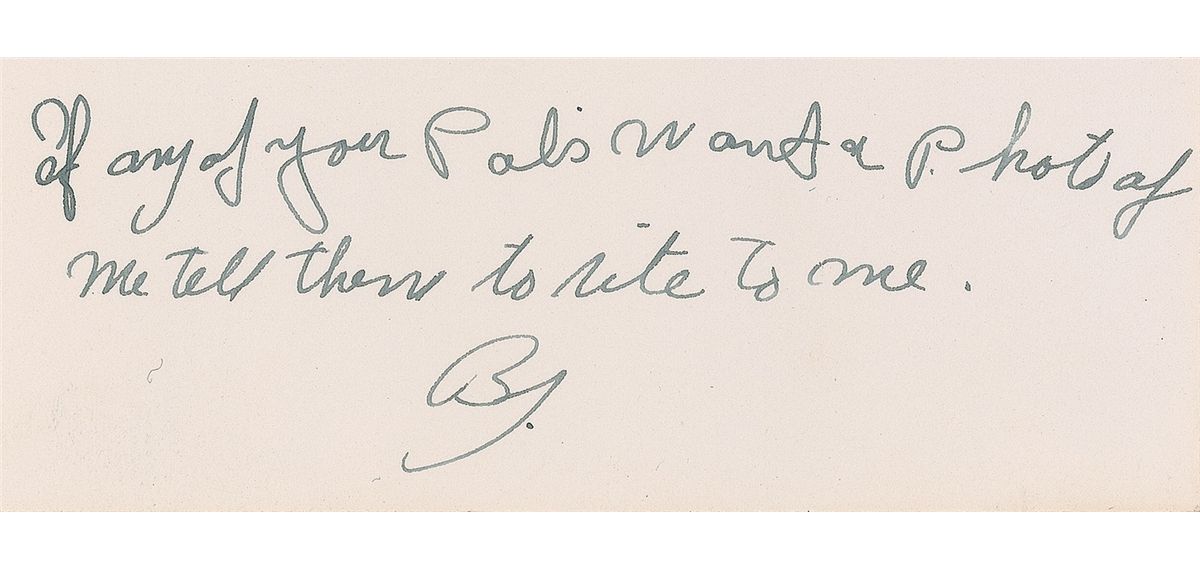 If any of your Pals want a Photo of
Me tell them to rite to me.
By.